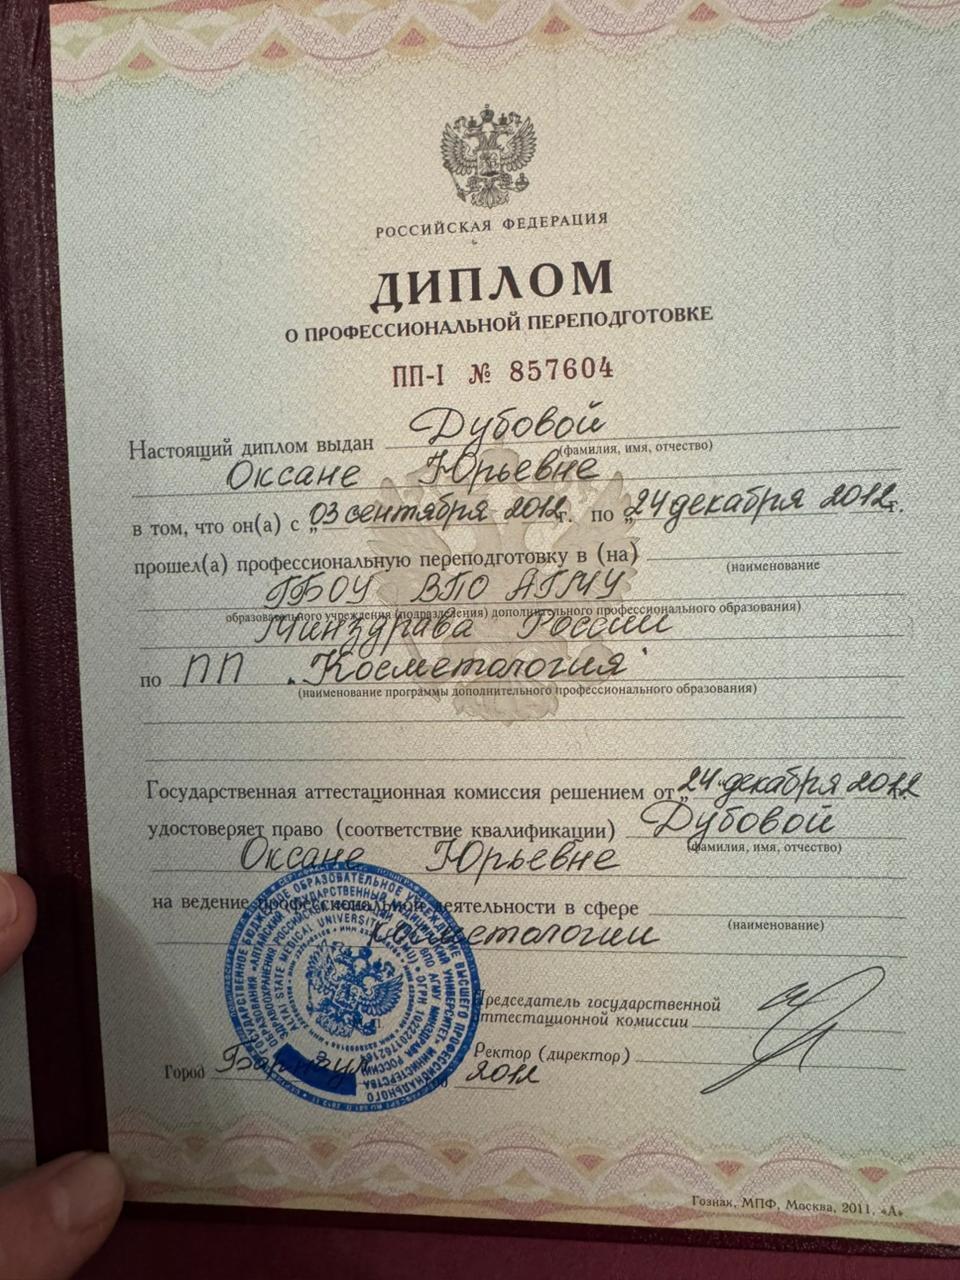 РОССИЙСКАЯ ФЕДЕРАЦИЯ
ДИПЛОМ
О ПРОФЕССИОНАЛЬНОЙ ПЕРЕПОДГОТОВКЕ
ПП-I № 857604
Настоящий диплом выдан Дубовой
(фамилия, имя, отчество)
Оксане Юрьевне
в том, что он(а) с „03 сентября 2012 г. по „24 декабря 2012 г.
прошел(а) профессиональную переподготовку в (на)
(наименование
ГБОУ ВПО АГМУ
образовательного учреждения (подразделения) дополнительного профессионального образования)
Минздрава России
по ПП „Косметология"
(наименование программы дополнительного профессионального образования)
Государственная аттестационная комиссия решением от „24" декабря 2012
удостоверяет право (соответствие квалификации) Дубовой
(фамилия, имя, отчество)
Оксане Юрьевне
на ведение профессиональной деятельности в сфере
(наименование)
косметологии
Председатель государственной
аттестационной комиссии
Ректор (директор)
Город Барнаул 2012
ALTAI STATE MEDICAL UNIVERSITY
Гознак, МПФ, Москва, 2011, «А».